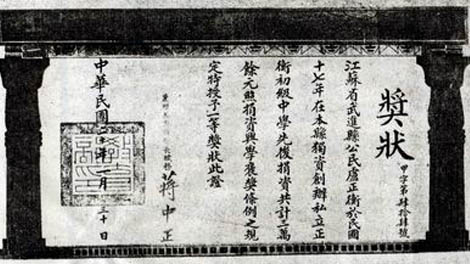 獎狀
甲字第肆拾肆號
江蘇省武進縣公民盧正衡於民國
十七年在本縣獨資創辦私立正
衡初級中學先後捐資共計三萬
餘元照捐資興學褒獎條例之規
定特授予一等獎狀此證
蔣中正
中華民國二十年一月三十日